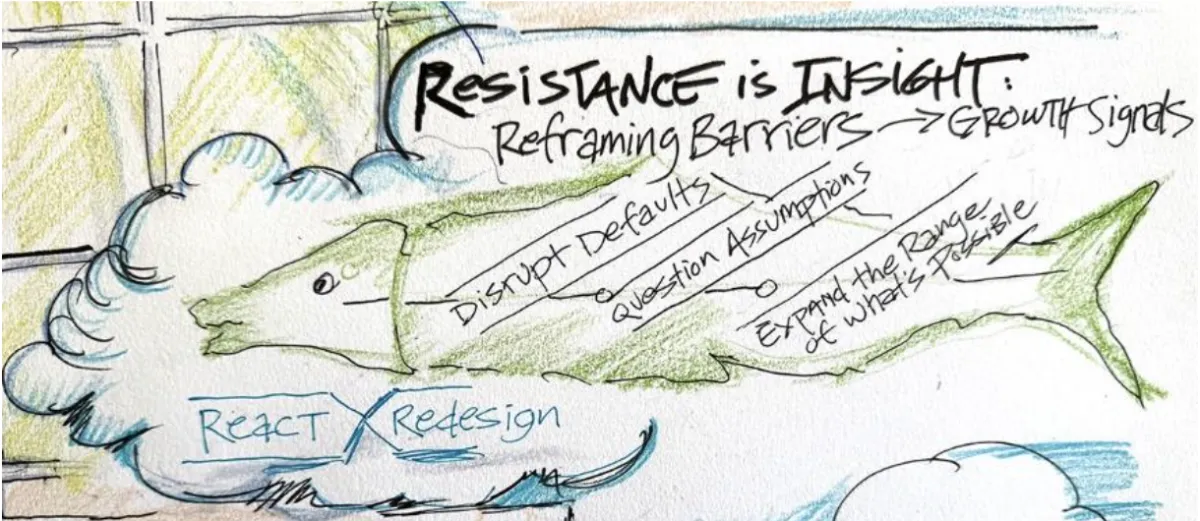 Resistance is Insight:
Reframing Barriers → Growth Signals
Disrupt Defaults
Question Assumptions
Expand the Range
of what's Possible
React
Redesign